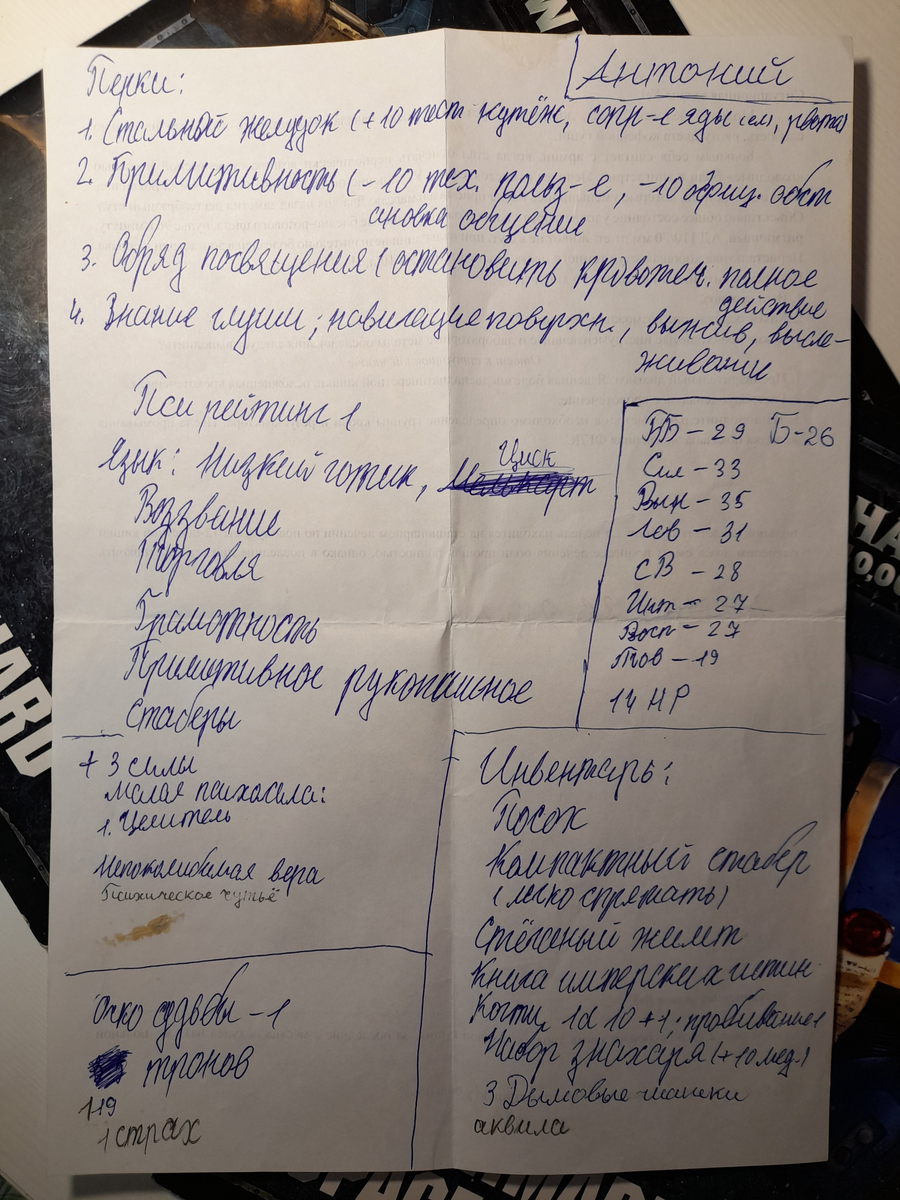 Антоний
Перки:
1. Стальной желудок (+10 тест кутёж, сопр-е яды ем, рвота)
2. Примитивность (-10 тех. польз-е, -10 офиц. обст
ановка общение
3. Обряд посвящения (остановить кровотеч. полное
действие
4. Знание глуши; навигация поверхн., выжив, высле-
живание
Пси рейтинг 1
Язык: Низкий готик, Циск
Воззвание
Торговля
Грамотность
Примитивное рукопашное
Стаберы
ББ - 29 Б-26
Сил - 33
Вын - 35
Лов - 31
СВ - 28
Инт - 27
Восп - 27
Тов - 19
14 HP
+ 3 силы
Малая психосила:
1. Целитель
Непоколебимая вера
Психическое чутьё
Очко судьбы - 1
тронов
119
1 страх
Инвентарь:
Посох
Компактный стабер
(легко спрятать)
Стёганый жилет
Книга имперских истин
Когти, 1d10+1; пробивание 1
Набор знахаря (+10 мед.)
3 Дымовые шашки
аквила
WARD